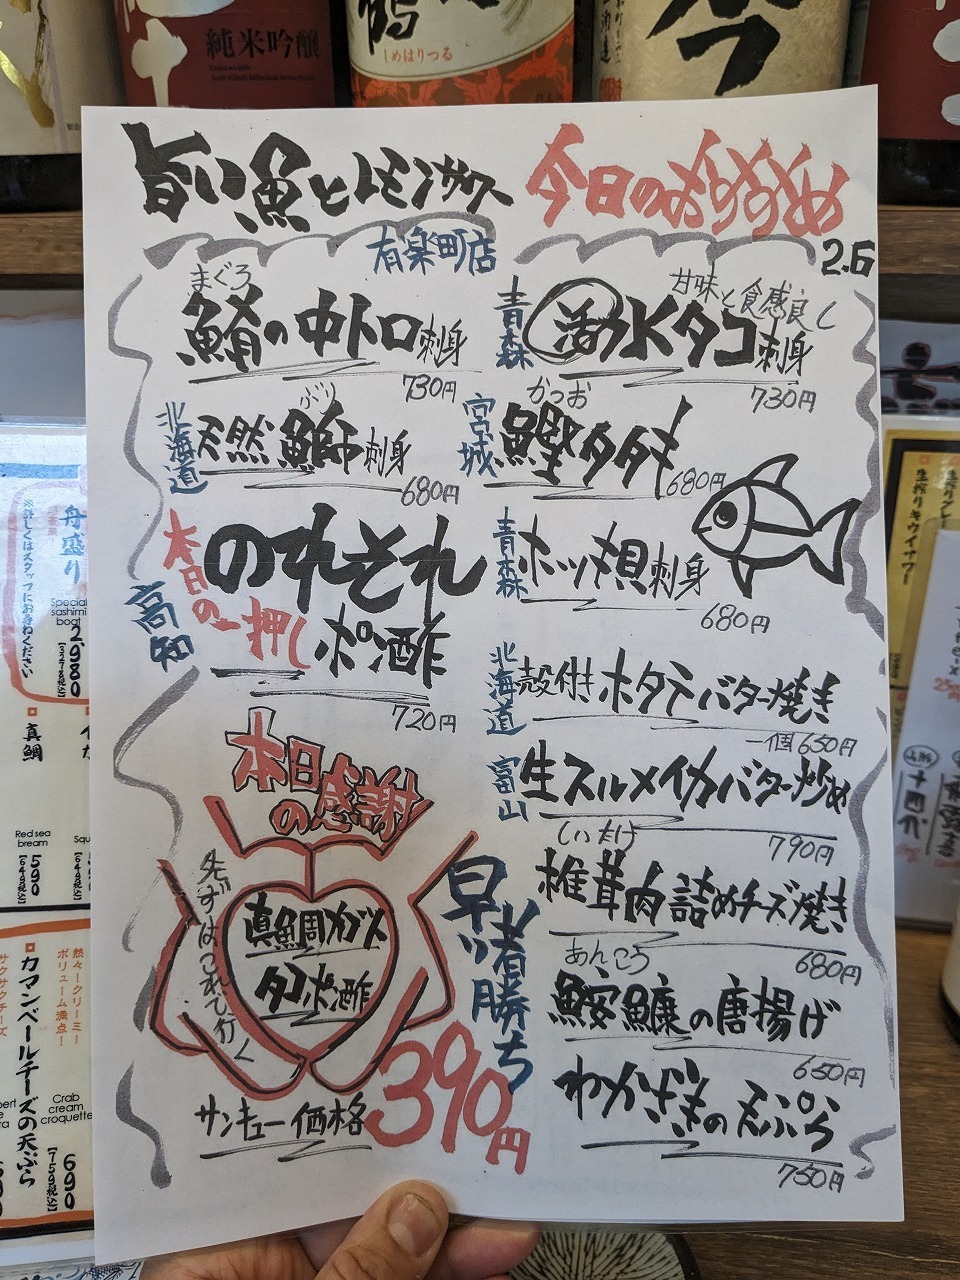 純米吟醸
しめはりつる
旨い魚とレモンサワー
今日のおすすめ
有楽町店
2.6
まぐろ
鮪の中トロ刺身
730円
北海道
ぶり
天然鰤刺身
680円
本日の一押し
高知
のれそれ
ポン酢
720円
本日感謝
の
必ずはつれて行く
真魚周カブツ
タコポン酢
早い者勝ち
サンキュー価格
390円
甘味と食感良し
青森
活水タコ刺身
730円
かつお
宮城
鰹タタキ
680円
青森
ホッキ貝刺身
680円
北海道
殻付きホタテバター焼き
一個650円
富山
生スルメイカバター炒め
790円
しいたけ
椎茸肉詰めチーズ焼き
680円
あんこう
鮟鱇の唐揚げ
650円
わかさぎの天ぷら
750円
舟盛り
※詳しくはスタッフにお尋ねください
Special
sashimi
boat
2,980
[3278税込]
真鯛
Red sea
bream
590
[649税込]
熱々！クリーミー
ボリューム満点！
カマンベールチーズの天ぷら
サクサクチーズ
Crab
cream
croquette
690
[759税込]
生搾りキウイサワー